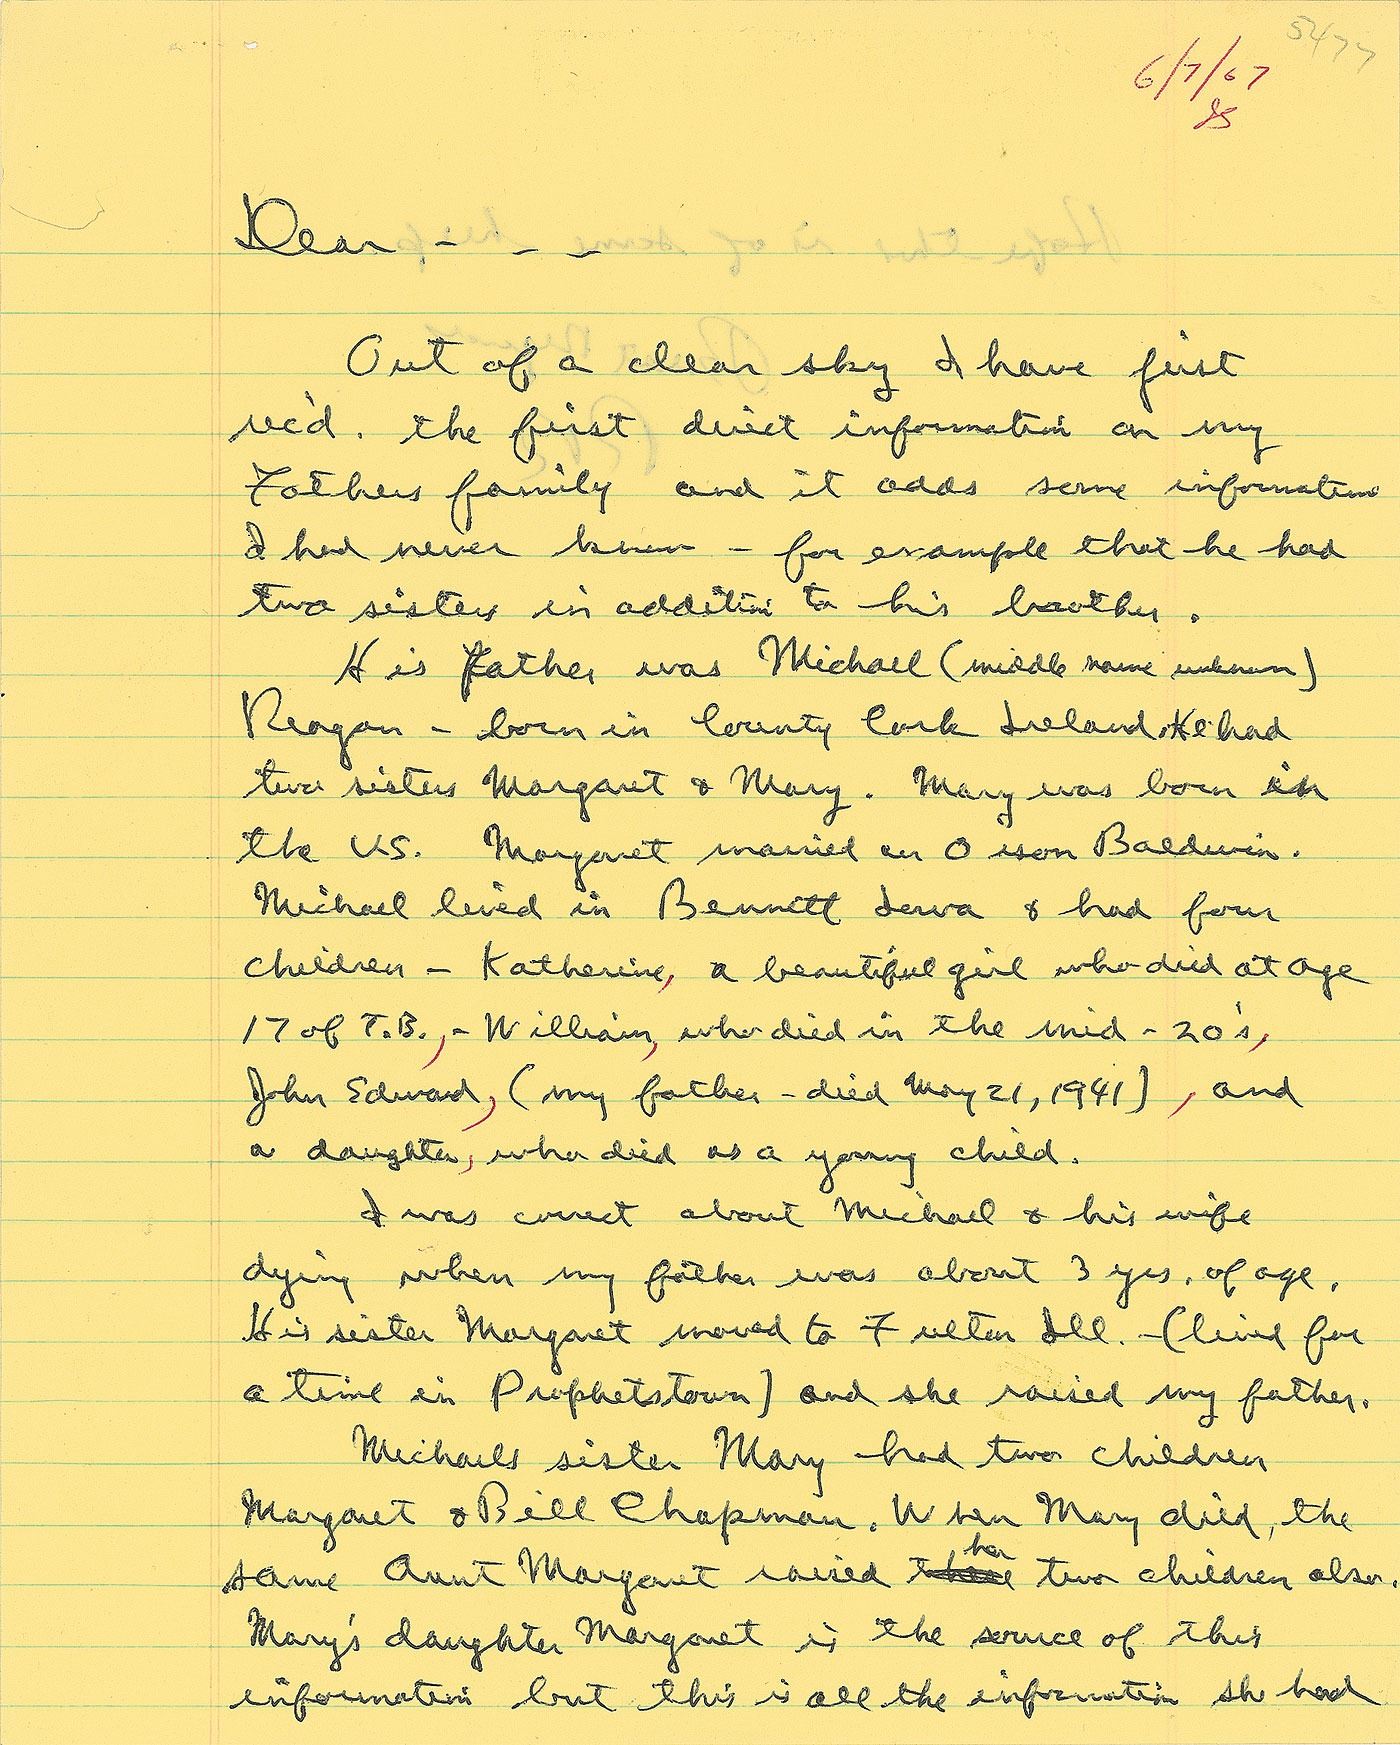 5477
6/7/67
JS
Dear - - -
Out of a clear sky I have first
rec'd. the first direct information on my
Fathers family and it adds some information
I had never known - for example that he had
two sisters in addition to his brother.
His father was Michael (middle name unknown)
Reagan - born in County Cork Ireland. He had
two sisters Margaret & Mary. Mary was born in
the US. Margaret married an Orson Baldwin.
Michael lived in Bennett Iowa & had four
children - Katherine, a beautiful girl who died at age
17 of T.B., - William, who died in the mid - 20's,
John Edward, (my father - died May 21, 1941), and
a daughter, who died as a young child.
I was correct about Michael & his wife
dying when my father was about 3 yrs. of age.
His sister Margaret moved to Fulton Ill. - (lived for
a time in Prophetstown) and she raised my father.
Michaels sister Mary had two children
Margaret & Bill Chapman. When Mary died, the
her
same Aunt Margaret raised these two children also.
Mary's daughter Margaret is the source of this
information but this is all the information she had